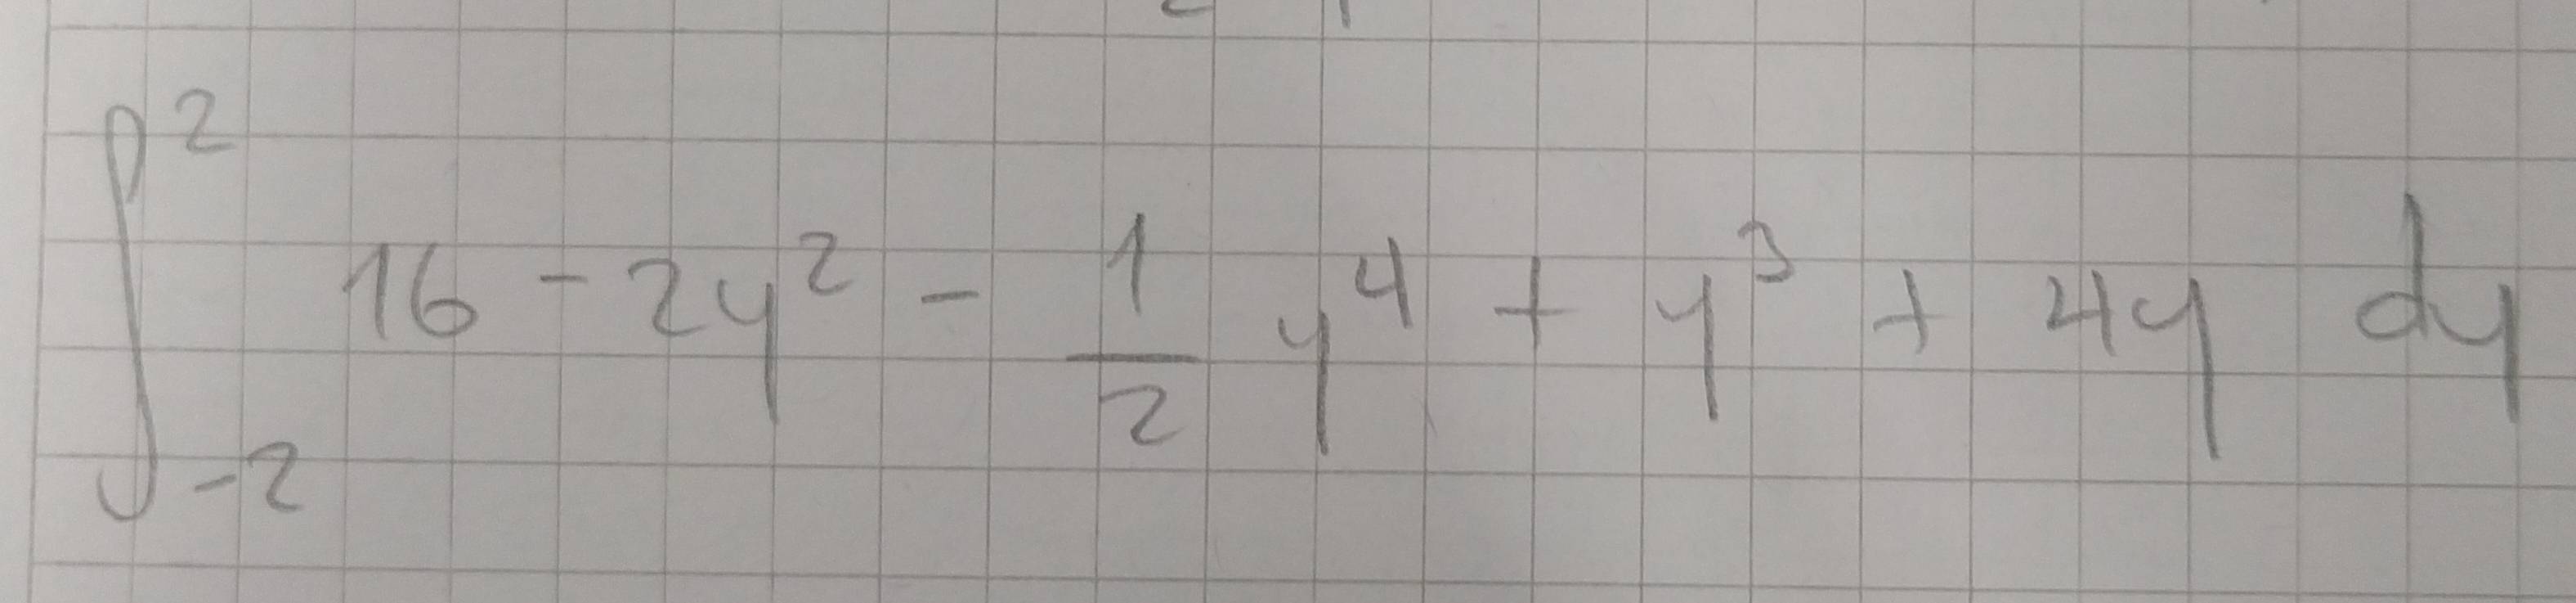 ∫_{-2}^{2} 16 - 2y^2 - \frac{1}{2} y^4 + y^3 + 4y dy